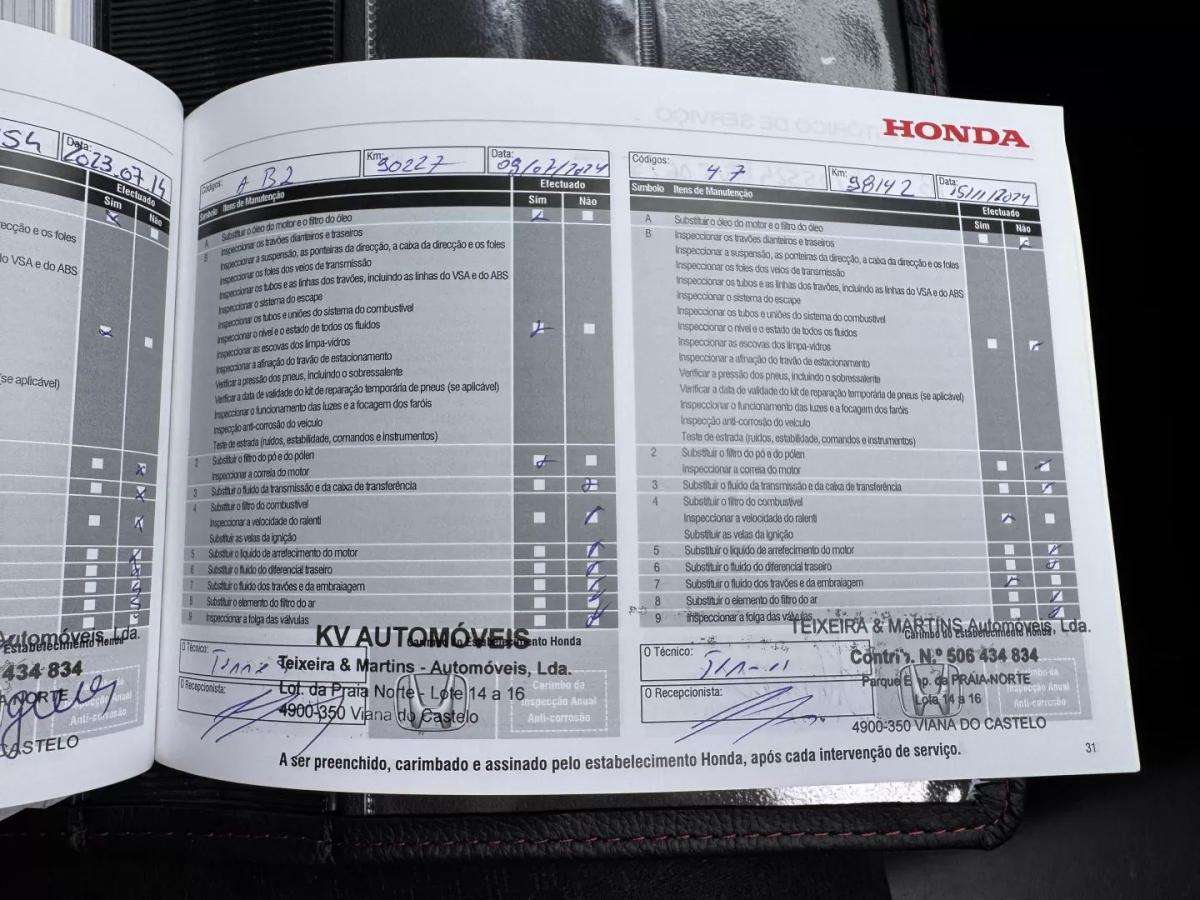 HONDA
Data:
2023.07.14
Efectuado
Sim
Não
ecção e os foles
do VSA e do ABS
(se aplicável)
Automóveis, Lda.
Estabelecimento Honda
434 834
NORTE
CASTELO
Inspecção Anual
Anti-corrosão
Códigos: A B2
Km: 90227
Data: 09/07/2024
Efectuado
Símbolo Itens de Manutenção
Sim
Não
A Substituir o óleo do motor e o filtro do óleo
B Inspeccionar os travões dianteiros e traseiros
Inspeccionar a suspensão, as ponteiras da direcção, a caixa da direcção e os foles
Inspeccionar os foles dos veios de transmissão
Inspeccionar os tubos e as linhas dos travões, incluindo as linhas do VSA e do ABS
Inspeccionar o sistema do escape
Inspeccionar os tubos e uniões do sistema do combustível
Inspeccionar o nível e o estado de todos os fluidos
Inspeccionar as escovas dos limpa-vidros
Inspeccionar a afinação do travão de estacionamento
Verificar a pressão dos pneus, incluindo o sobressalente
Verificar a data de validade do kit de reparação temporária de pneus (se aplicável)
Inspeccionar o funcionamento das luzes e a focagem dos faróis
Inspecção anti-corrosão do veículo
Teste de estrada (ruídos, estabilidade, comandos e instrumentos)
2 Substituir o filtro do pó e do pólen
Inspeccionar a correia do motor
3 Substituir o fluido da transmissão e da caixa de transferência
4 Substituir o filtro do combustível
Inspeccionar a velocidade do ralenti
Substituir as velas da ignição
5 Substituir o líquido de arrefecimento do motor
6 Substituir o fluido do diferencial traseiro
7 Substituir o fluido dos travões e da embraiagem
8 Substituir o elemento do filtro do ar
9 Inspeccionar a folga das válvulas
KV AUTOMÓVEIS
Carimbo do Estabelecimento Honda
O Técnico:
Teixeira & Martins - Automóveis, Lda.
Lot. da Praia Norte - Lote 14 a 16
4900-350 Viana do Castelo
O Recepcionista:
Carimbo da
Inspecção Anual
Anti-corrosão
Códigos: 4.7
Km: 98142
Data: 15/11/2024
Símbolo Itens de Manutenção
Efectuado
Sim
Não
A Substituir o óleo do motor e o filtro do óleo
B Inspeccionar os travões dianteiros e traseiros
Inspeccionar a suspensão, as ponteiras da direcção, a caixa da direcção e os foles
Inspeccionar os foles dos veios de transmissão
Inspeccionar os tubos e as linhas dos travões, incluindo as linhas do VSA e do ABS
Inspeccionar o sistema do escape
Inspeccionar os tubos e uniões do sistema do combustível
Inspeccionar o nível e o estado de todos os fluidos
Inspeccionar as escovas dos limpa-vidros
Inspeccionar a afinação do travão de estacionamento
Verificar a pressão dos pneus, incluindo o sobressalente
Verificar a data de validade do kit de reparação temporária de pneus (se aplicável)
Inspeccionar o funcionamento das luzes e a focagem dos faróis
Inspecção anti-corrosão do veículo
Teste de estrada (ruídos, estabilidade, comandos e instrumentos)
2 Substituir o filtro do pó e do pólen
Inspeccionar a correia do motor
3 Substituir o fluido da transmissão e da caixa de transferência
4 Substituir o filtro do combustível
Inspeccionar a velocidade do ralenti
Substituir as velas da ignição
5 Substituir o líquido de arrefecimento do motor
6 Substituir o fluido do diferencial traseiro
7 Substituir o fluido dos travões e da embraiagem
8 Substituir o elemento do filtro do ar
9 Inspeccionar a folga das válvulas
TEIXEIRA & MARTINS Automóveis, Lda.
Carimbo do Estabelecimento Honda
O Técnico:
Contrib. N.º 506 434 834
Parque Emp. da PRAIA-NORTE
Lote 14 a 16
4900-350 VIANA DO CASTELO
O Recepcionista:
Carimbo da
Inspecção Anual
Anti-corrosão
A ser preenchido, carimbado e assinado pelo estabelecimento Honda, após cada intervenção de serviço.
31